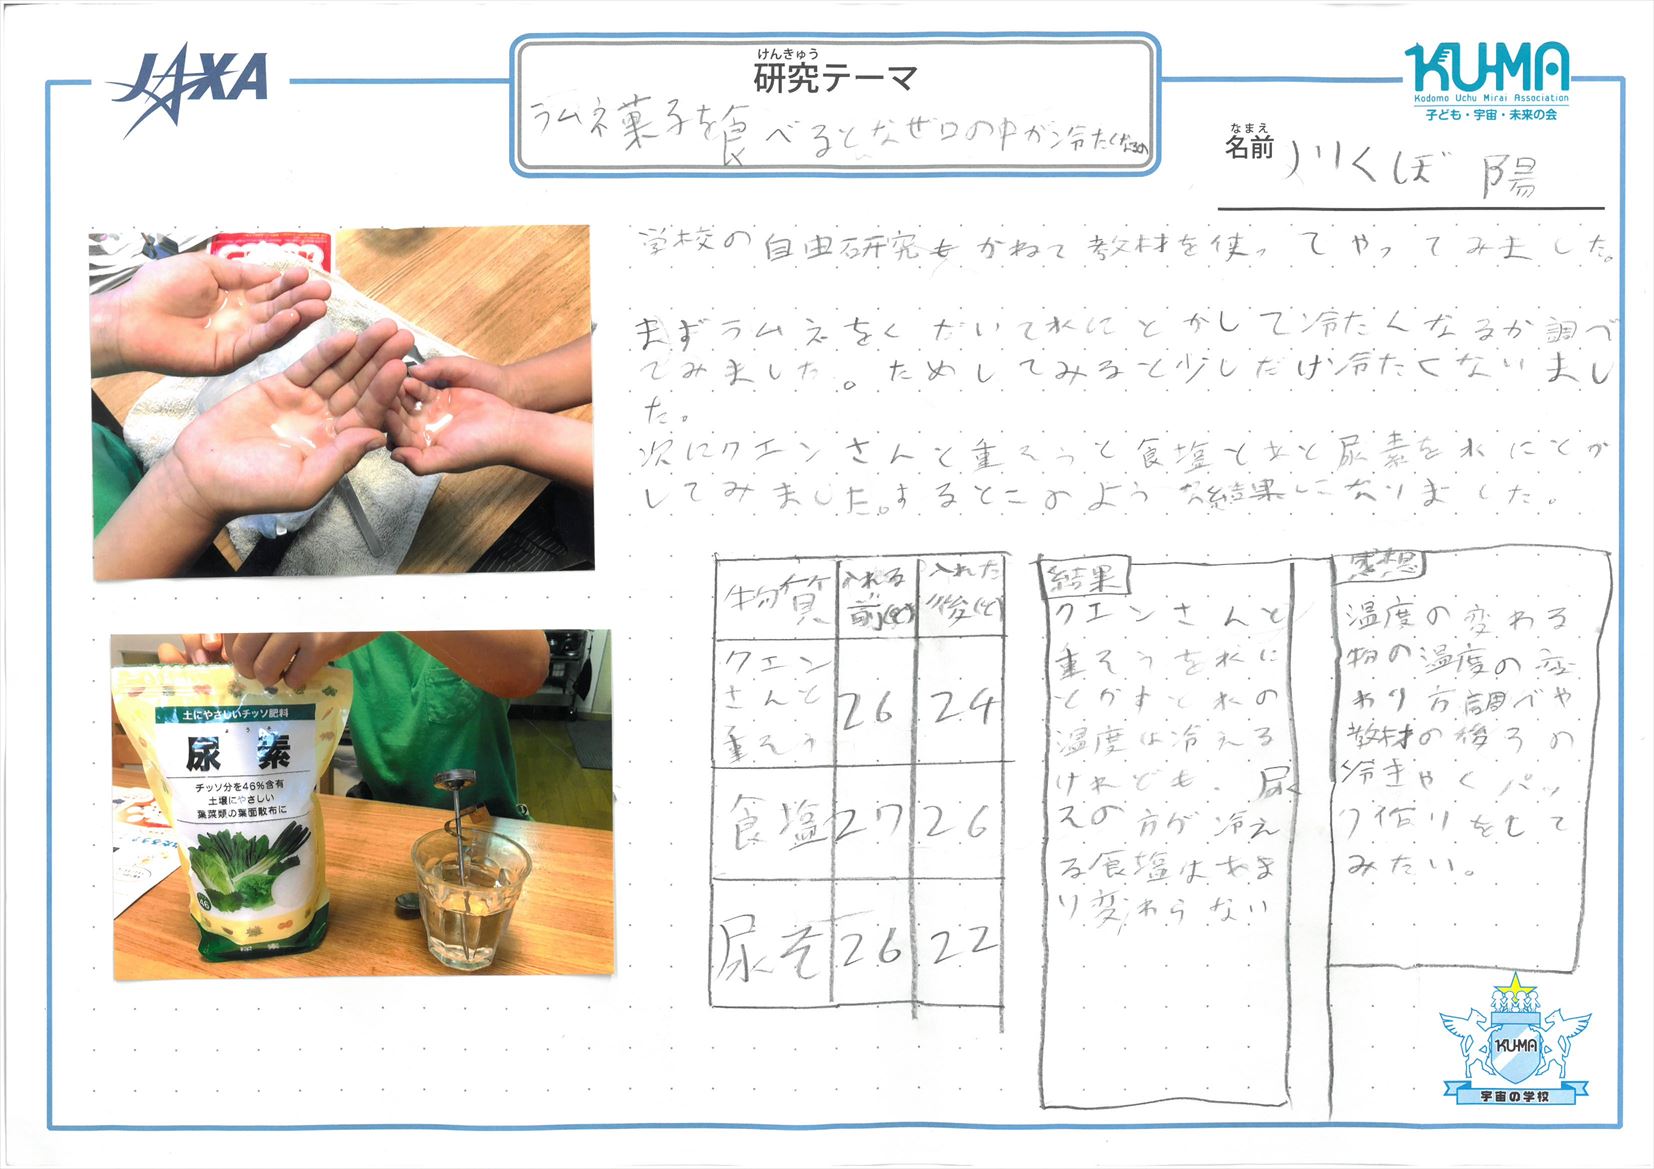 JAXA
けんきゅう
研究テーマ
ラムネ菓子を食べるとなぜ口の中が冷たくなるの
KU-MA
Kodomo Uchu Mirai Association
子ども・宇宙・未来の会
なまえ
名前
川くぼ 陽
学校の自由研究もかねて教材を使ってやってみました。
まずラムネをくだいて水にとかして冷たくなるか調べ
てみました。ためしてみると少しだけ冷たくないまし
た。
次にクエンさんと重そうと食塩とあと尿素を水にとか
してみました。するとこのような結果になりました。
物質
入れる前(℃)
入れた後(℃)
クエンさんと重そう
26
24
食塩
27
26
尿そ
26
22
結果
クエンさんと
重そうを水に
とかすと水の
温度は冷える
けれども、尿
その方が冷え
る食塩はあま
り変わらない
感想
温度の変わる
物の温度の変
わり方調べや
教材の後ろの
冷きゃくパッ
ク作りをして
みたい。
土にやさしいチッソ肥料
尿素
チッソ分を46%含有
土壌にやさしい
葉菜類の葉面散布に
46
尿素
KU-MA
宇宙の学校